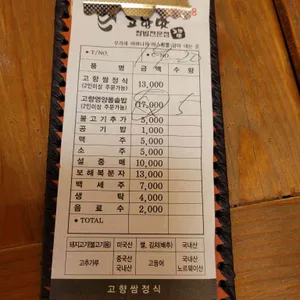 고향맛
쌈밥전문점
T/NO. C/NO.
품 명 금 액 수 량
고향쌈정식 13,000
(2인이상 주문가능)
고향영양돌솥밥 17,000
(2인이상 주문가능)
불고기추가 5,000
공기밥 1,000
맥주 5,000
소주 5,000
설중매 10,000
보해복분자 13,000
백세주 7,000
생탁 4,000
음료수 2,000
TOTAL
돼지고기(불고기용) 미국산 쌀, 김치(배추) 국내산
고추가루 중국산 국내산 고등어 국내산 노르웨이산
고향쌈정식